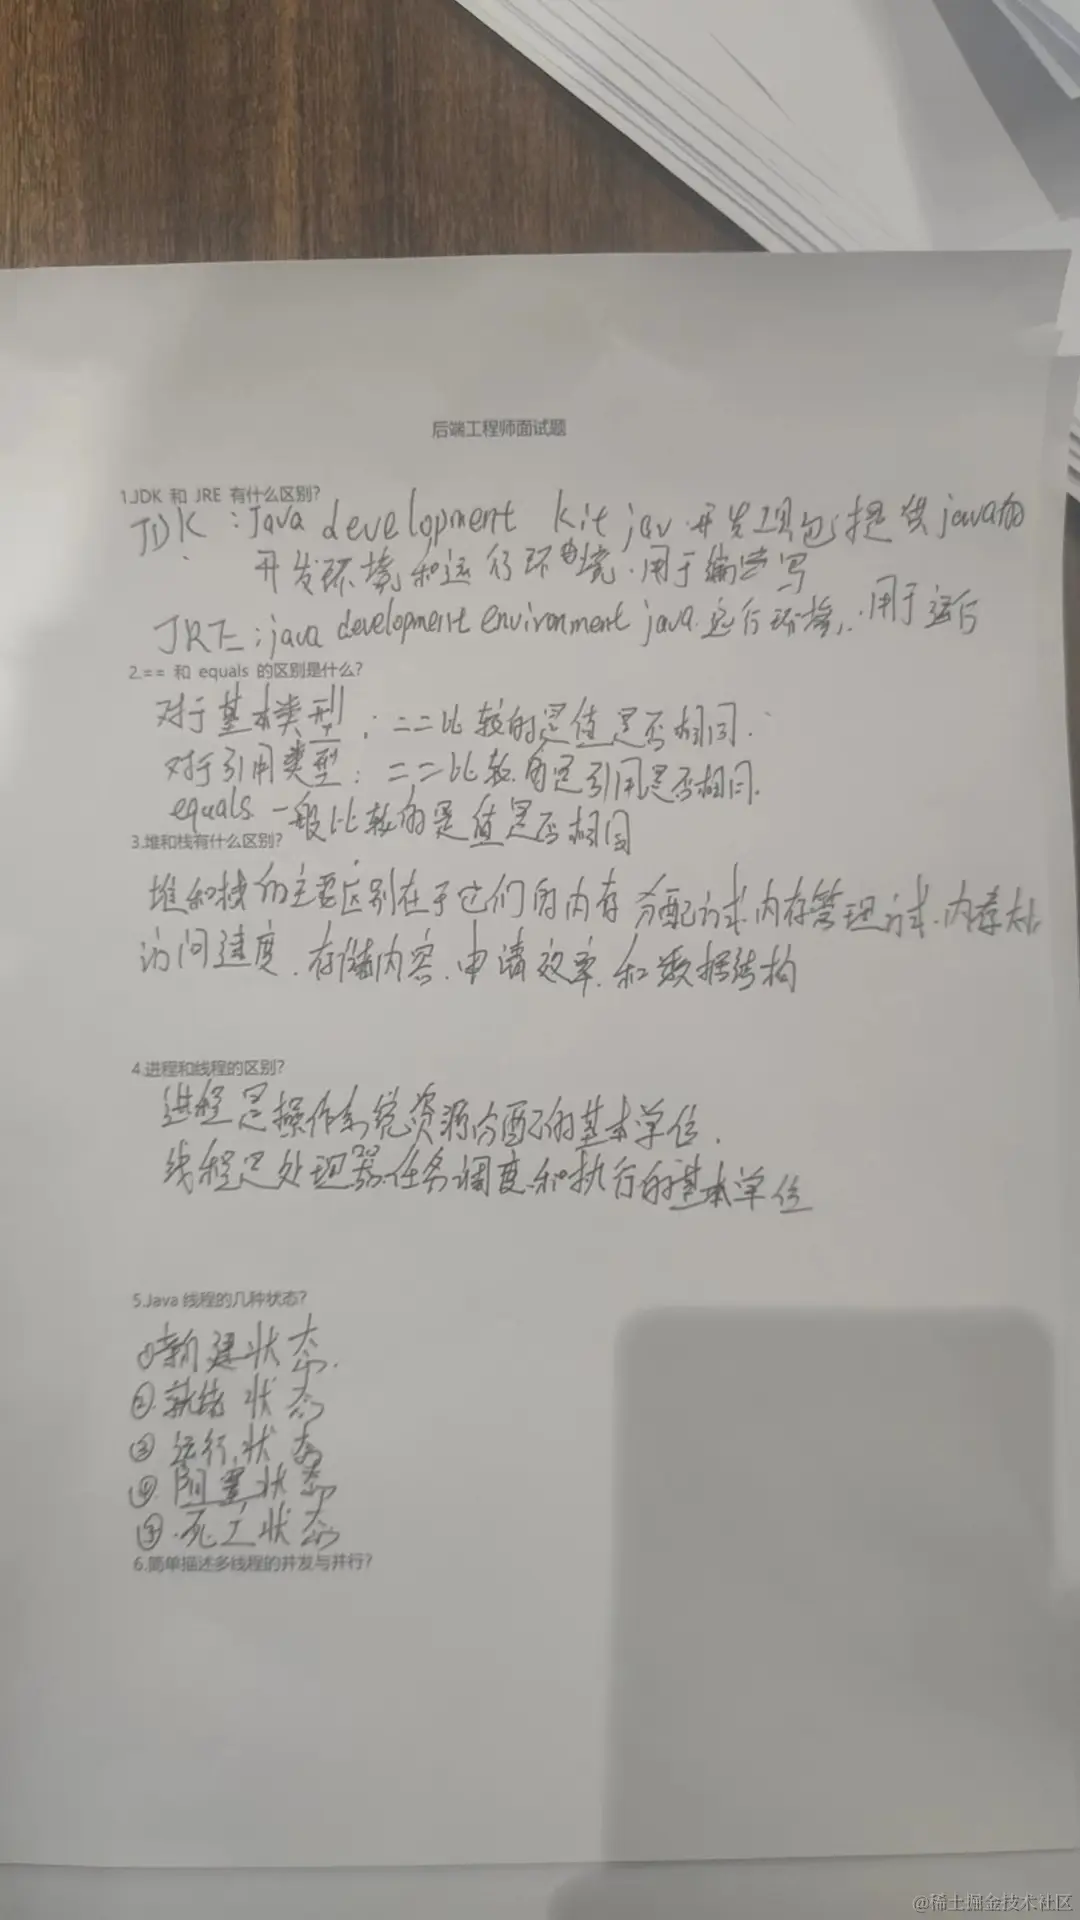 后端工程师面试题
1.JDK 和 JRE 有什么区别?
JDK:Java development kit jav 开发工具包,提供java的
开发环境和运行环境.用于编写
JRE:java development environment java.运行环境,.用于运行
2.== 和 equals 的区别是什么?
对于基本类型:==比较的是值是否相同.
对于引用类型:==比较的是引用是否相同.
equals.一般比较的是值是否相同
3.堆和栈有什么区别?
堆和栈的主要区别在于它们的内存分配方式.内存管理方式.内存大小
访问速度.存储内容.申请效率.和数据结构
4.进程和线程的区别?
进程是操作系统资源分配的基本单位.
线程是处理器任务调度和执行的基本单位
5.Java 线程的几种状态?
①新建状态.
②.就绪状态
③运行状态
④.阻塞状态
⑤.死亡状态
6.简单描述多线程的并发与并行?
@稀土掘金技术社区